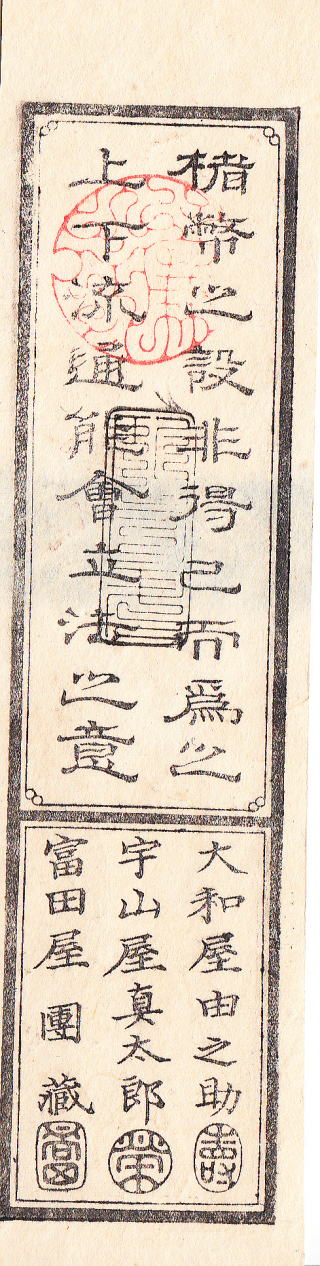 楮幣之設非得已而爲之
上下流通能會立法之意
大和屋由之助
宇山屋真太郎
富田屋團藏